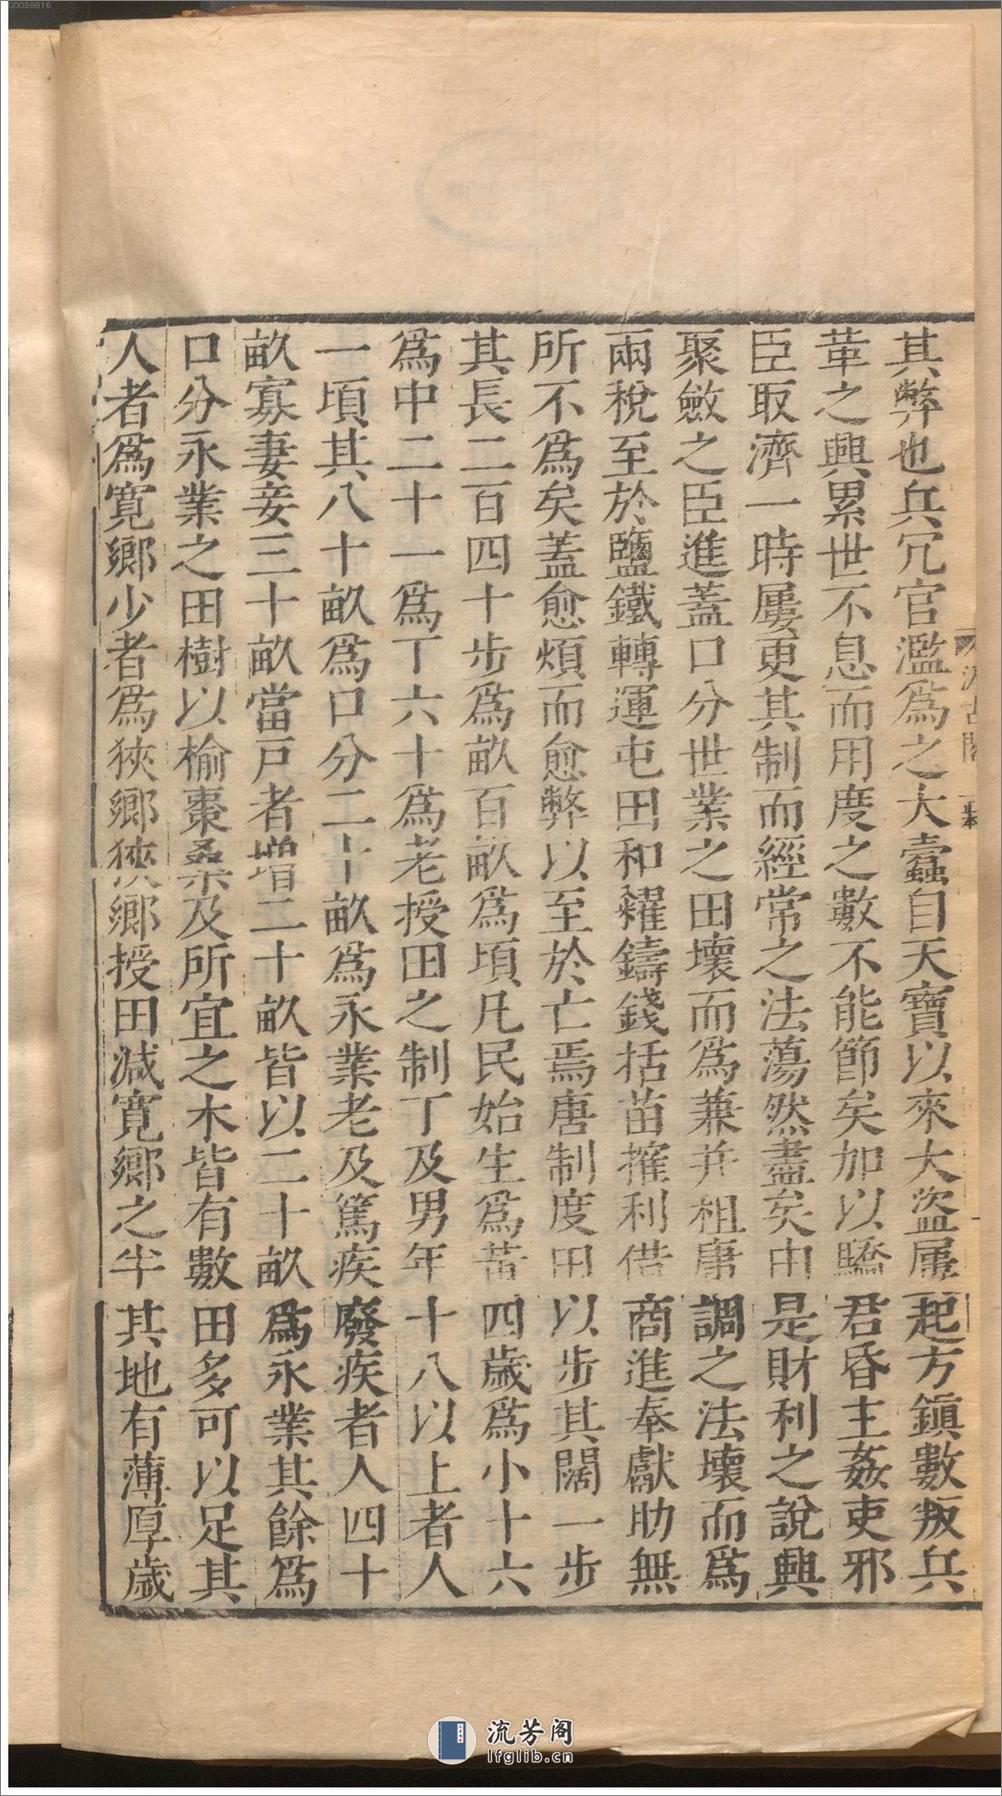 其弊也兵冗官濫爲之大蠹自天寶以來大盜屢起方鎮數叛兵
革之興累世不息而用度之數不能節矣加以驕君昏主姦吏邪
臣取濟一時屢更其制而經常之法蕩然盡矣由是財利之說興
聚斂之臣進蓋口分世業之田壞而爲兼并租庸調之法壞而爲
兩稅至於鹽鐵轉運屯田和糴鑄錢括苗搉利借商進奉獻助無
所不爲矣蓋愈煩而愈弊以至於亡焉唐制度田以步其闊一步
其長二百四十步爲畝百畝爲頃凡民始生爲黃四歲爲小十六
爲中二十一爲丁六十爲老授田之制丁及男年十八以上者人
一頃其八十畝爲口分二十畝爲永業老及篤疾廢疾者人四十
畝寡妻妾三十畝當戶者增二十畝皆以二十畝爲永業其餘爲
口分永業之田樹以榆棗桑及所宜之木皆有數田多可以足其
人者爲寬鄉少者爲狹鄉狹鄉授田減寬鄉之半其地有薄厚歲
汲古閣
流芳阁
lfglib.cn
00059916